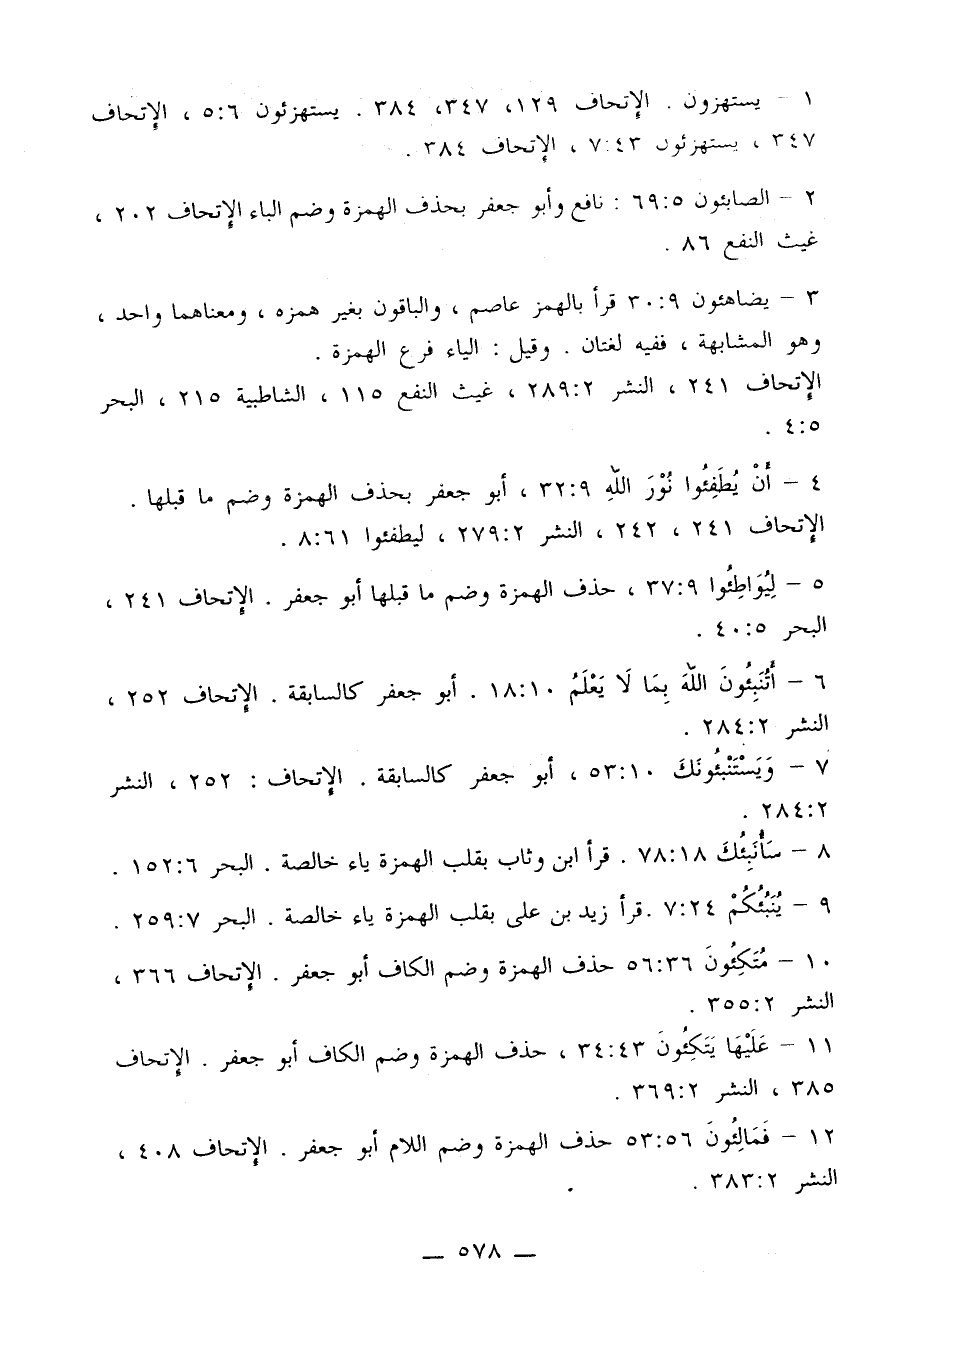 ١ – يستهزون . الإتحاف ١٢٩، ٣٤٧، ٣٨٤ . يستهزئون ٥:٦ ، الإتحاف
٣٤٧ ، يستهزئون ٧:٤٣ ، الإتحاف ٣٨٤ .
٢ – الصابئون ٦٩:٥ : نافع وأبو جعفر بحذف الهمزة وضم الباء الإتحاف ٢٠٢ ،
غيث النفع ٨٦ .
٣ – يضاهئون ٣٠:٩ قرأ بالهمز عاصم ، والباقون بغير همزه ، ومعناهما واحد ،
وهو المشابهة ، ففيه لغتان . وقيل : الياء فرع الهمزة .
الإتحاف ٢٤١ ، النشر ٢٨٩:٢ ، غيث النفع ١١٥ ، الشاطبية ٢١٥ ، البحر
٤:٥ .
٤ – أَنْ يُطَفِئُوا نُوْرَ اللّهِ ٣٢:٩ ، أبو جعفر بحذف الهمزة وضم ما قبلها .
الإتحاف ٢٤١ ، ٢٤٢ ، النشر ٢٧٩:٢ ، ليطفئوا ٨:٦١ .
٥ – لِيُوَاطِئُوا ٣٧:٩ ، حذف الهمزة وضم ما قبلها أبو جعفر . الإتحاف ٢٤١ ،
البحر ٤٠:٥ .
٦ – أَتُنَبِئُونَ اللّهَ بِمَا لَا يَعْلَمُ ١٨:١٠ . أبو جعفر كالسابقة . الإتحاف ٢٥٢ ،
النشر ٢٨٤:٢ .
٧ – وَيَسْتَنْبِئُونَكَ ٥٣:١٠ ، أبو جعفر كالسابقة . الإتحاف : ٢٥٢ ، النشر
٢٨٤:٢ .
٨ – سَأُنَبِئُكَ ٧٨:١٨ . قرأ ابن وثاب بقلب الهمزة ياء خالصة . البحر ١٥٢:٦ .
٩ – يُنَبِّئُكُمْ ٧:٢٤ .قرأ زيد بن على بقلب الهمزة ياء خالصة . البحر ٢٥٩:٧ .
١٠ – مُتَكِئُونَ ٥٦:٣٦ حذف الهمزة وضم الكاف أبو جعفر . الإتحاف ٣٦٦ ،
النشر ٣٥٥:٢ .
١١ – عَلَيْهَا يَتَكِئُونَ ٣٤:٤٣ ، حذف الهمزة وضم الكاف أبو جعفر . الإتحاف
٣٨٥ ، النشر ٣٦٩:٢ .
١٢ – فَمَالِئُونَ ٥٣:٥٦ حذف الهمزة وضم اللام أبو جعفر . الإتحاف ٤٠٨ ،
النشر ٣٨٣:٢ .
— ٥٧٨ —